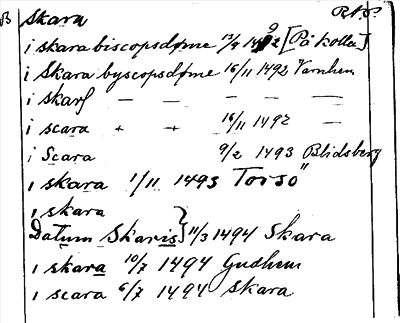 B Skara R.A.P.
i skara biscopsdøme 13/9 1492 [På kollen]
i Skara byscopsdøme 16/11 1492 Varnhem
i skarf — — — — —
i scara + + 16/11 1492 —
i Scara 9/2 1493 Blidsberg
i skara 1/11 1493 Torsö
i skara
Datum Skaris} 11/3 1494 Skara
i skara 10/7 1494 Gudhem
i scara 6/7 1494 Skara